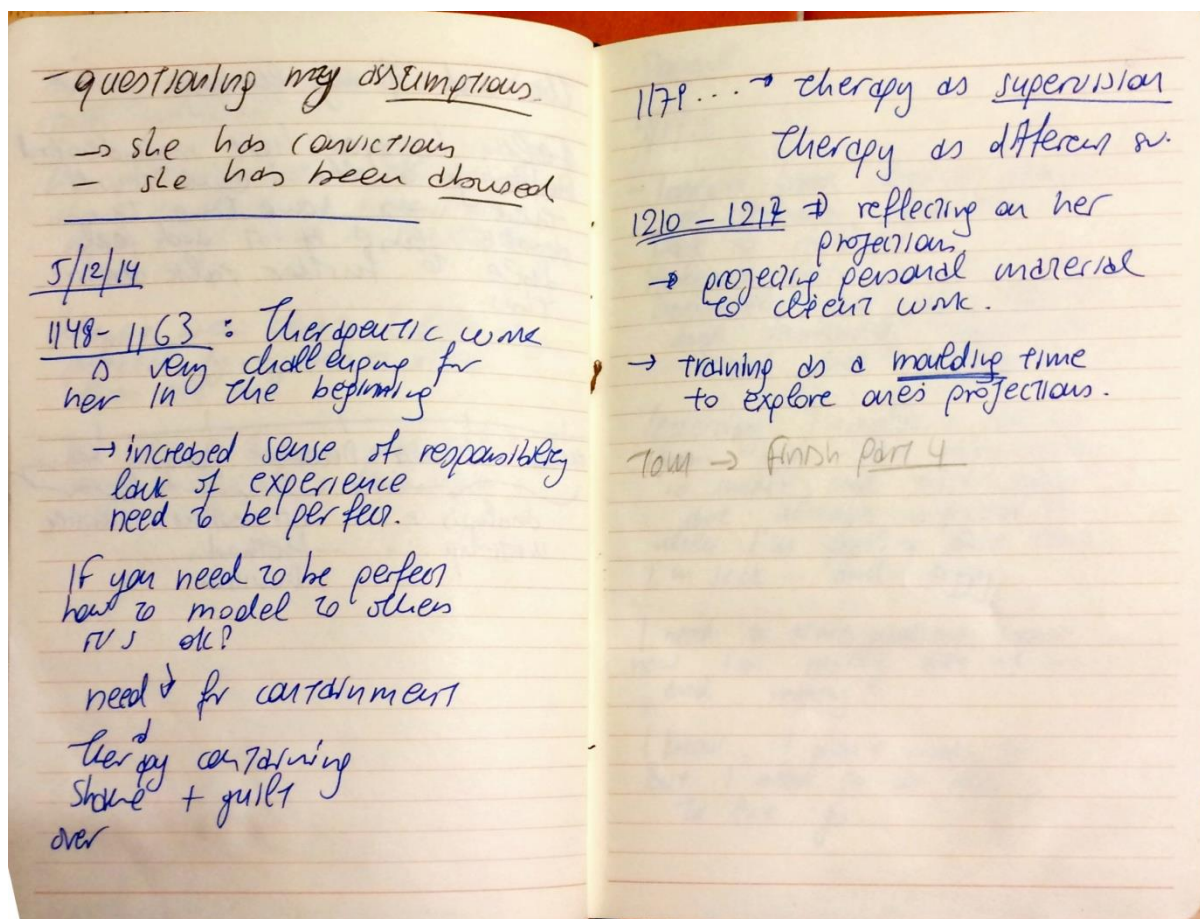 - questioning my assumptions.
→ she has convictions
- she has been abused
5/12/14
1148-1163 : Therapeutic work
is very challenging for
her in the beginning
→ increased sense of responsibility
lack of experience
need to be perfect.
If you need to be perfect
how to model to others
it's ok?
need for containment
therapy containing
shame + guilt
over
1179... → therapy as supervision
therapy as different
1210 - 1217 → reflecting on her
projections
→ projecting personal material
to client work.
→ training as a moulding time
to explore one's projections.
Tom → finish part 4